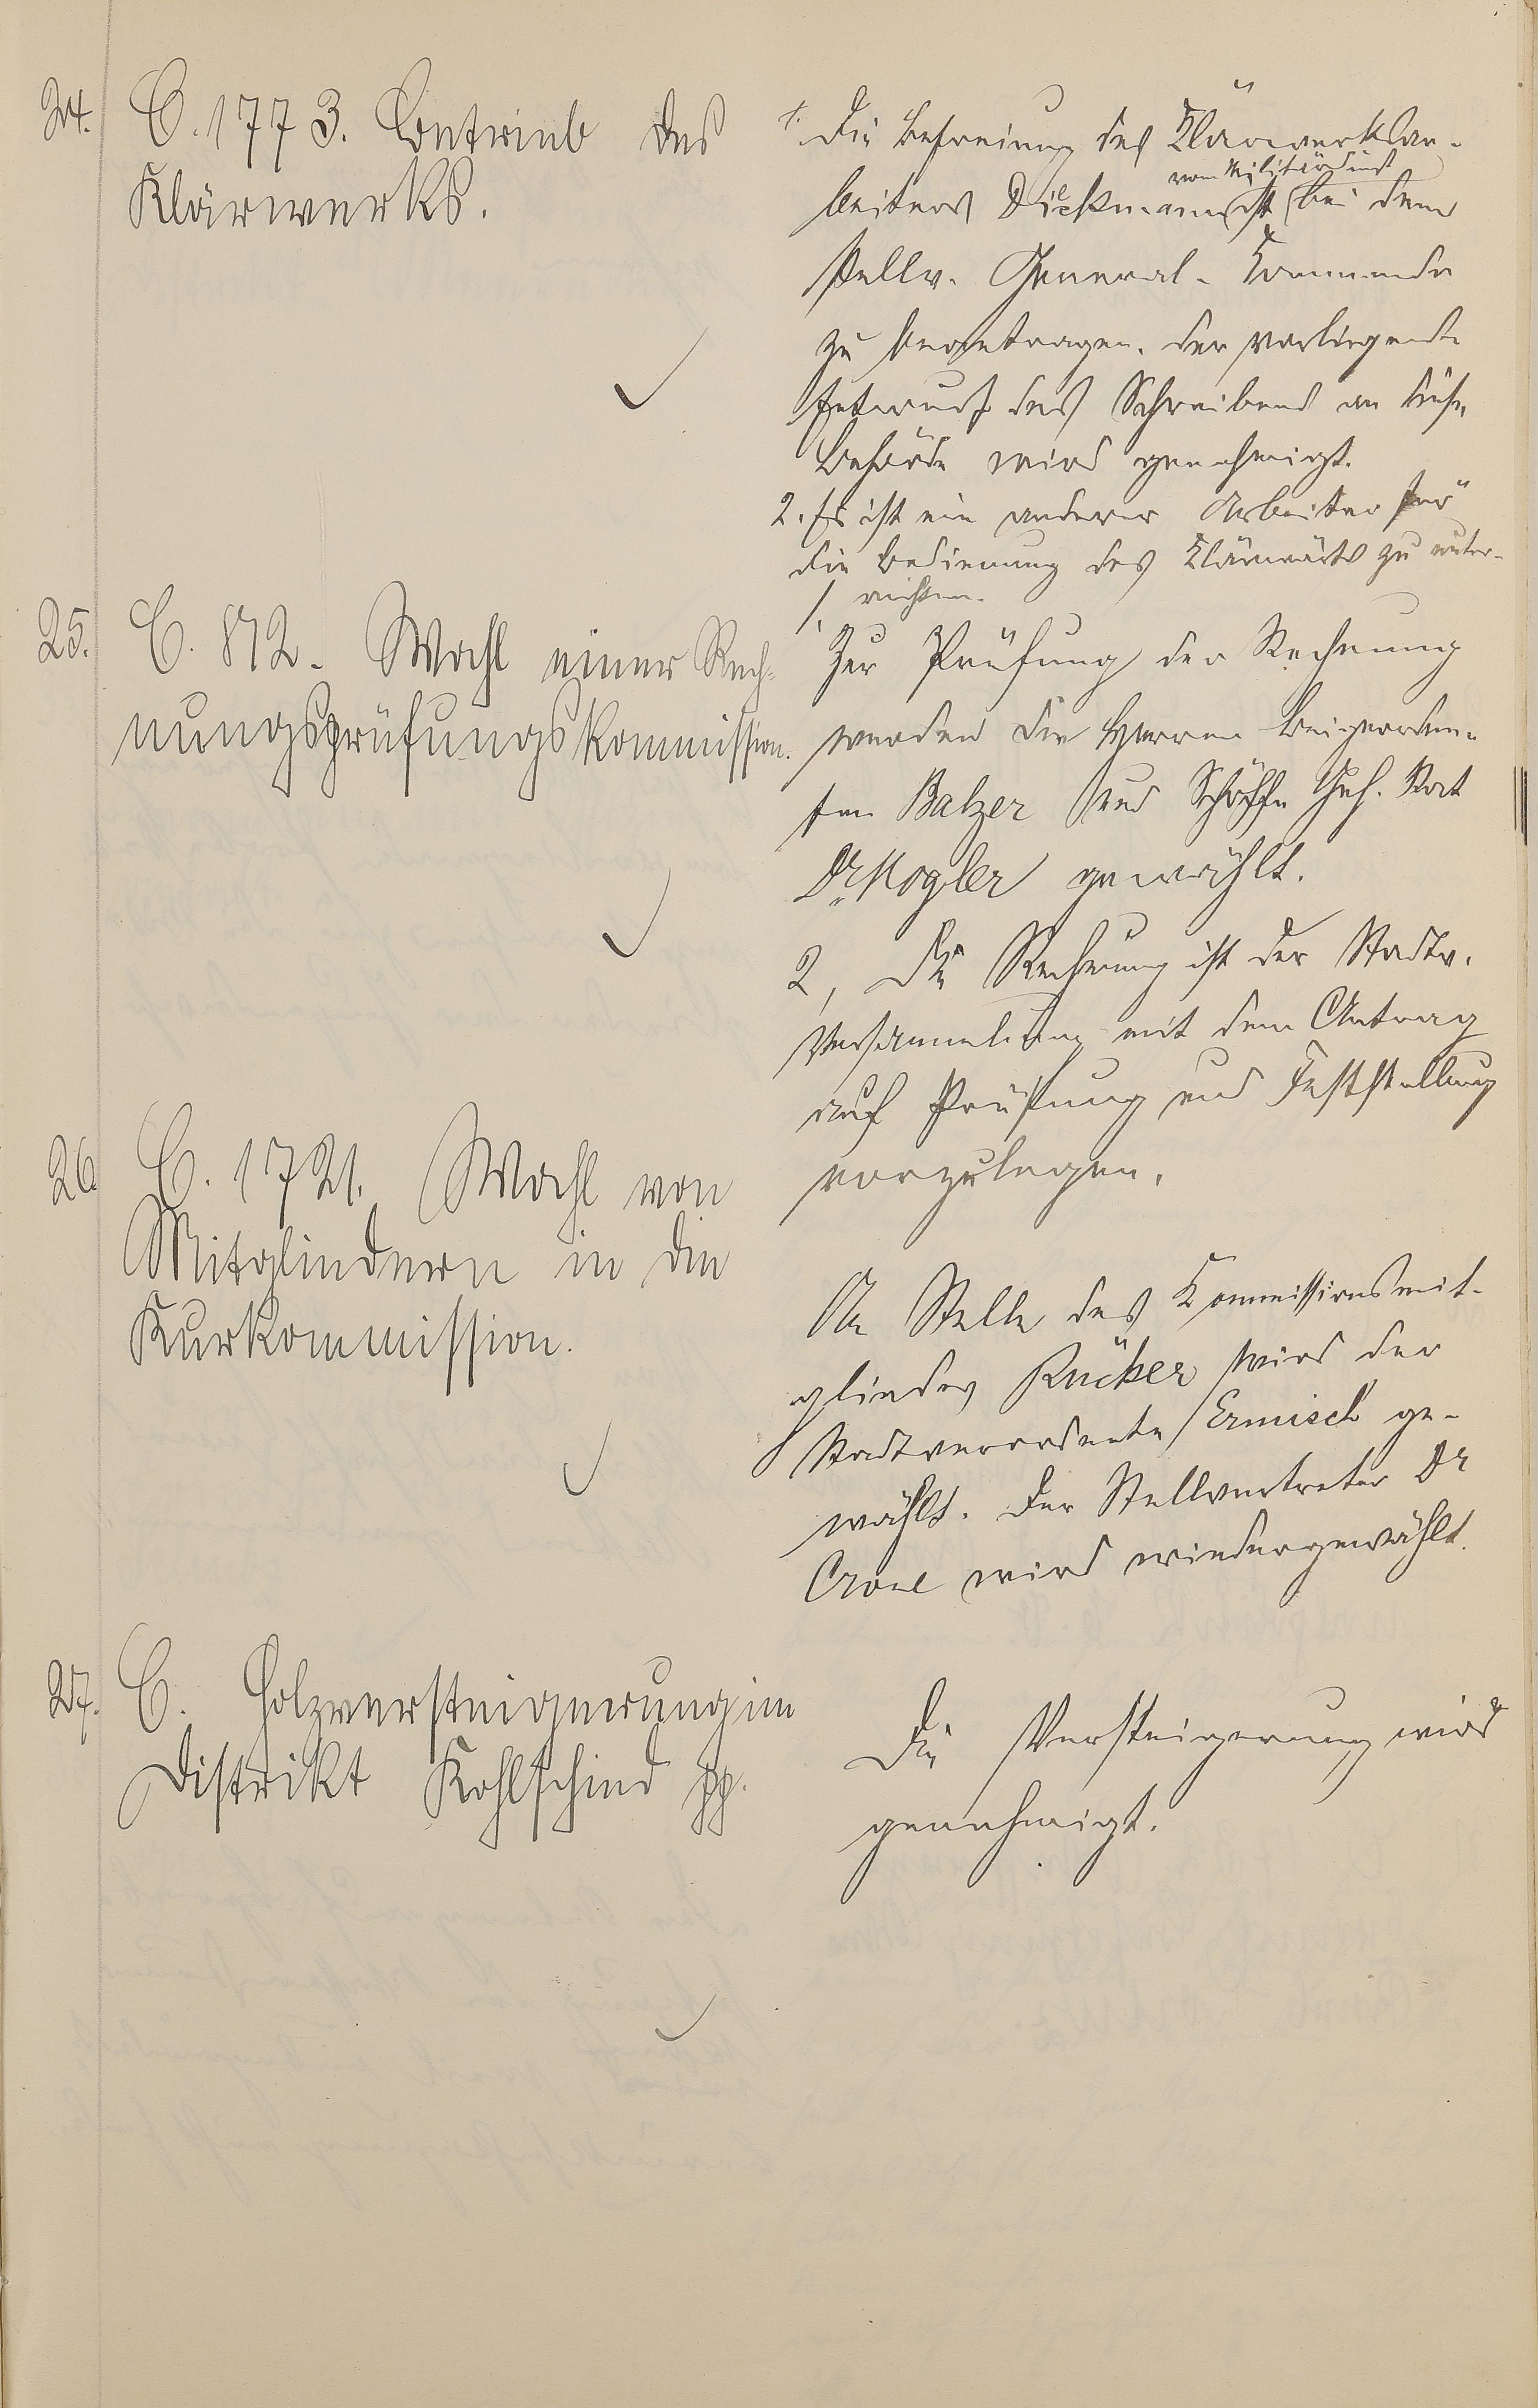 24. C. 1773. Betrieb des
Klärwerks.
1. Die Befreiung des Klärwerksar-
beiters Dickmann ist bei dem
vom Militärdienst
stellv. General-Kommando
zu beantragen. Der vorliegende
Entwurf des Schreibens an diese
Behörde wird genehmigt.
2. Es ist ein anderer Arbeiter für
die Bedienung des Klärwerks zu unter-
richten.
25. C. 872. Wahl einer Rech-
nungsprüfungskommission.
1. Zur Prüfung der Rechnung
werden die Herren Beigeordne-
ten Balzer und Schöffe Geh. Rat
Dr. gewählt.
2, Die Rechnung ist der Stadtv.
Versammlung mit dem Antrag
auf Prüfung und Feststellung
vorzulegen.
26. C. 1721. Wahl von
Mitgliedern in die
Kurkommission.
An Stelle des Kommissionsmit-
gliedes Rücker wird der
Stadtverordnete Ermisch ge-
wählt. Der Stellvertreter Dr
Crone wird wiedergewählt.
27. C. Holzversteigerung im
Distrikt Kohlschied pp.
Die Versteigerung wird
genehmigt.